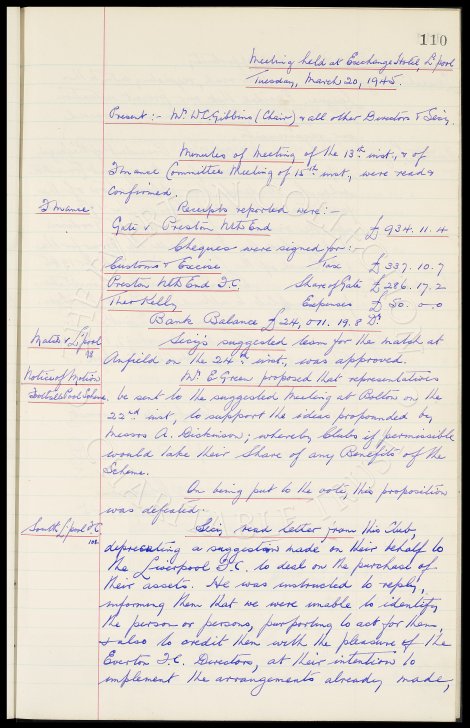 110
Meeting held at Exchange Hotel, L'pool
Tuesday, March 20, 1945.
Present :- Mr. W.C. Gibbins (Chair) & all other Directors & Secy.
Minutes of Meeting of the 13th inst., & of
Finance Committee Meeting of 15th inst., were read &
confirmed.
Finance. Receipts reported were :-
Gate v. Preston Nth End £ 934. 11. 4
Cheques were signed for :-
Customs & Excise Tax £ 337. 10. 7
Preston Nth End F.C. Share of Gate £ 286. 17. 2
Theo Kelly Expenses £ 50. 0. 0
Bank Balance £24,011. 19. 8 Dr.
Match v. L'pool Secy's suggested team for the match at
Anfield on the 24th inst., was approved.
Notice of Motion Mr. E. Green proposed that representatives
Football Pool Scheme. be sent to the suggested Meeting at Bolton on the
22nd inst, to support the ideas propounded by
Messrs A. Dickinson; whereby Clubs if permissible
would take their Share of any Benefits of the
Scheme.
On being put to the vote, this proposition
was defeated.
South L'pool F.C. Secy. read letter from this Club,
deprecating a suggestion made on their behalf to
the Liverpool F.C. to deal on the purchase of
their assets. He was instructed to reply,
informing them that we were unable to identify
the person or persons, purporting to act for them,
& also to credit them with the pleasure of the
Everton F.C. Directors, at their intentions to
implement the arrangements already made,